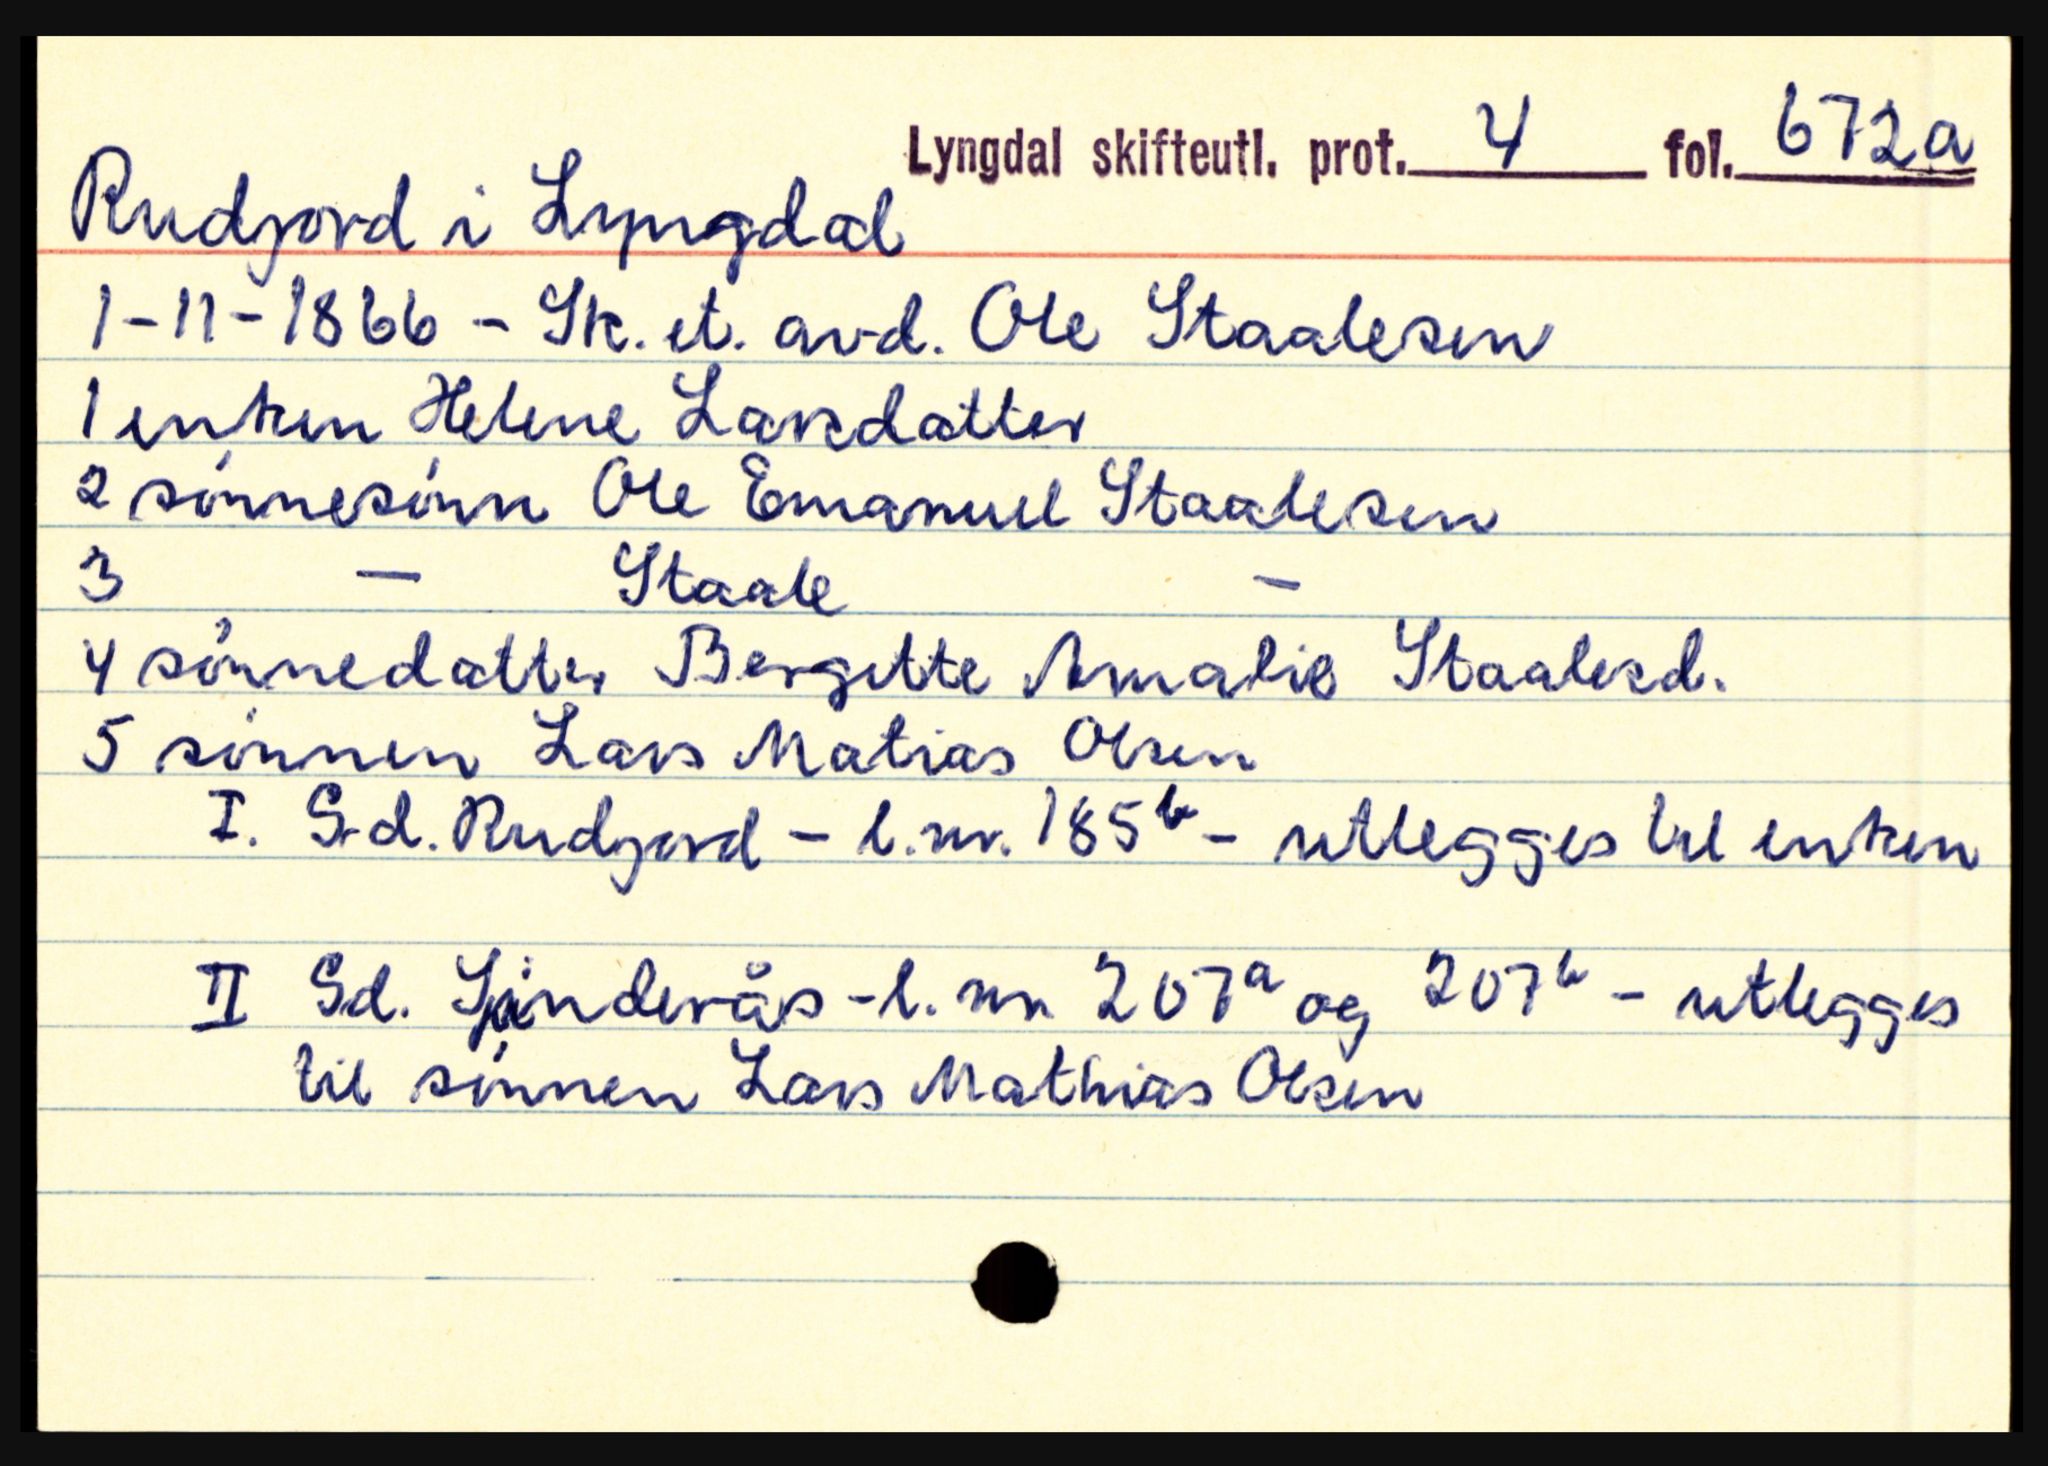 Lyngdal skifteutl. prot. 4 fol. 672a
Rudjord i Lyngdal
1-11-1866 - Sk. et. avd. Ole Staalesen
1 enken Helene Larsdatter
2 sønnesønn Ole Emanuel Staalesen
3 — Staale —
4 sønnedatter Bergitte Amalie Staalesd.
5 sønnen Lars Matias Olsen
I. Gd. Rudjord - l.nr. 185b - utlegges til enken
II Gd. - l. nr. 207a og 207b - utlegges
til sønnen Lars Mathias Olsen